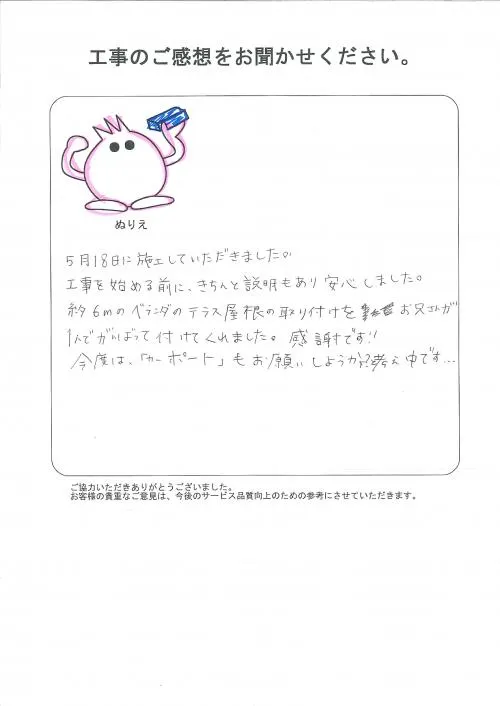 工事のご感想をお聞かせください。
ぬりえ
5月18日に施工していただきました。
工事を始める前に、きちんと説明もあり安心しました。
約6mのベランダのテラス屋根の取り付けを お兄さんが
1人でがんばって付けてくれました。感謝です!!
今度は、「カーポート」もお願いしようか?考え中です…
ご協力いただきありがとうございました。
お客様の貴重なご意見は、今後のサービス品質向上のための参考にさせていただきます。